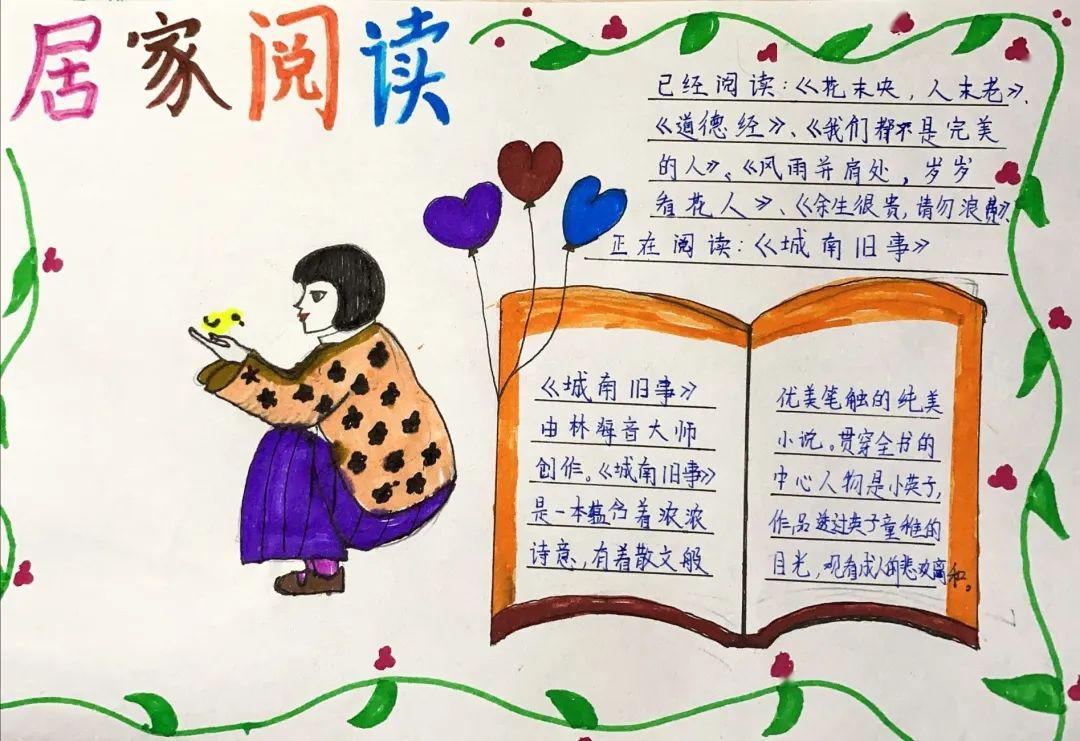 居家阅读
已经阅读:《花未央,人未老》、
《道德经》、《我们都不是完美
的人》、《风雨并肩处,岁岁
看花人》、《余生很贵,请勿浪费》、
正在阅读:《城南旧事》
《城南旧事》
由林海音大师
创作。《城南旧事》
是一本蕴含着浓浓
诗意,有着散文般
优美笔触的纯美
小说。贯穿全书的
中心人物是小英子,
作品透过英子童稚的
目光,观看成人的悲欢离和。